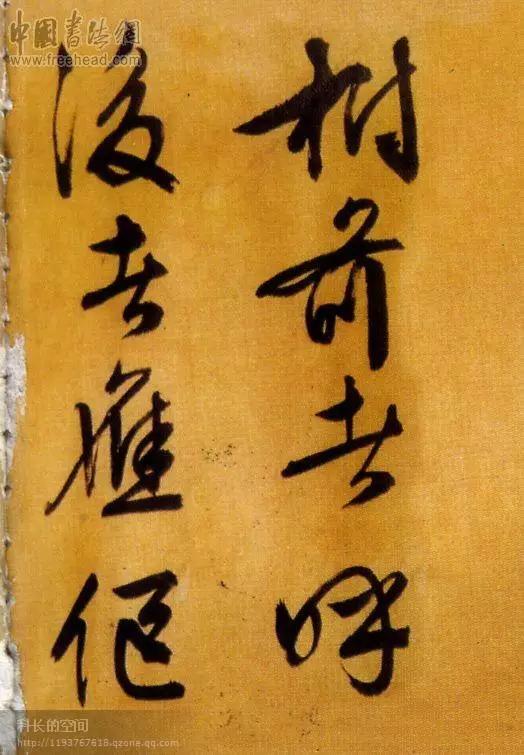 中國書法網
www.freehead.com
樹前者呼
後者應傴
科长的空间
http://1193767618.qzone.qq.com